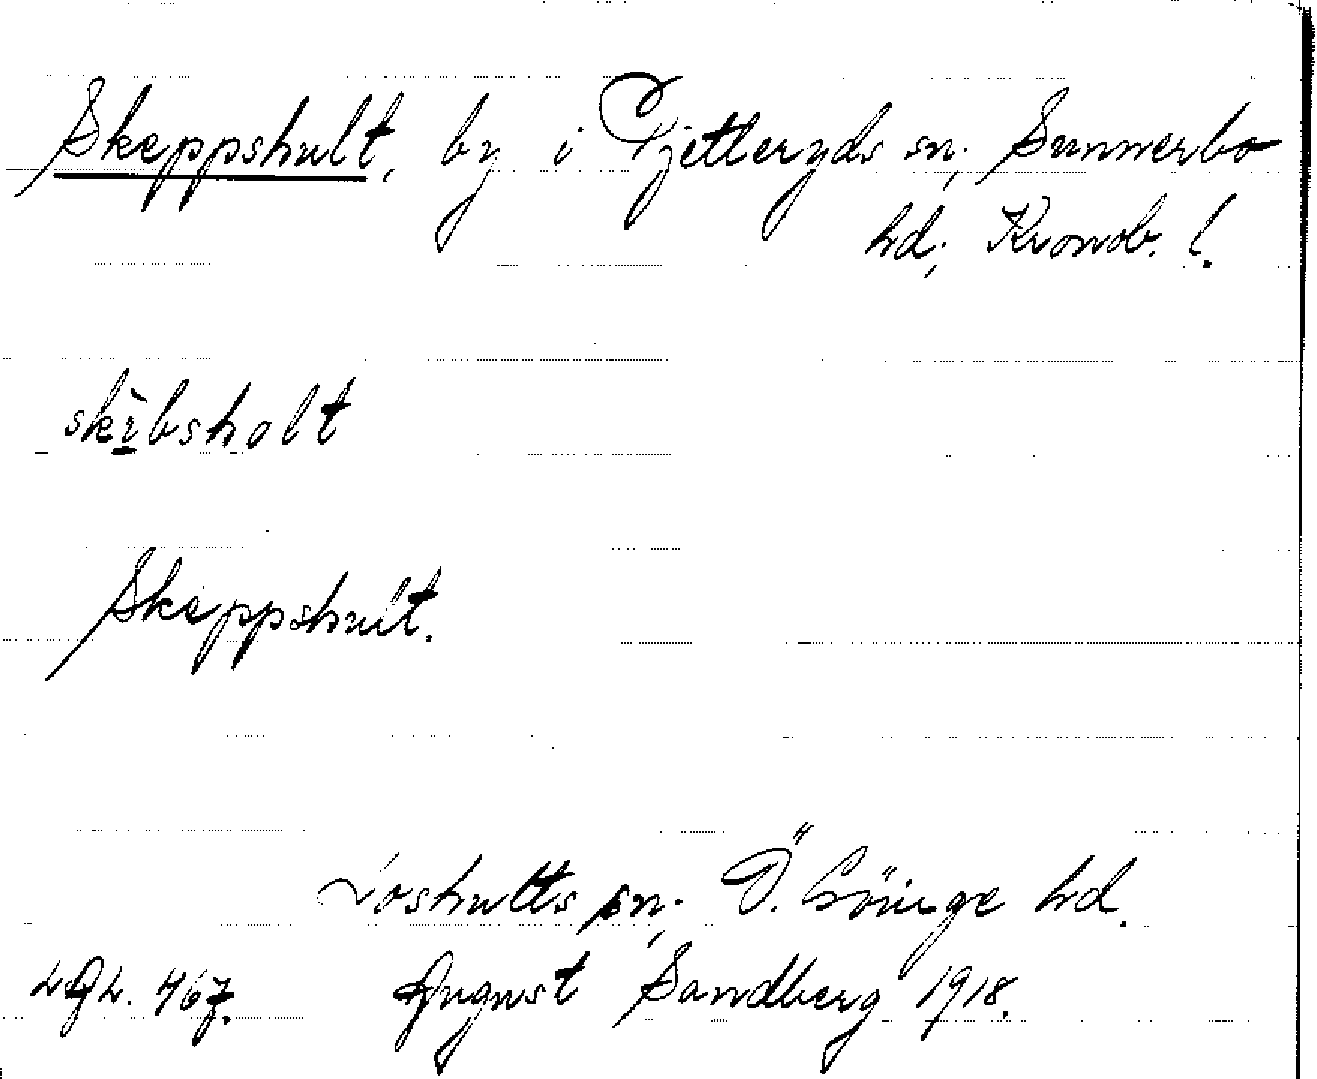 Skeppshult, by i Pjetteryds sn, Sunnerbo
hd, Kronob. l.
skìbsholt
Skeppshult.
Loshults sn, Ö. Göinge hd.
467. August Sandberg 1918.